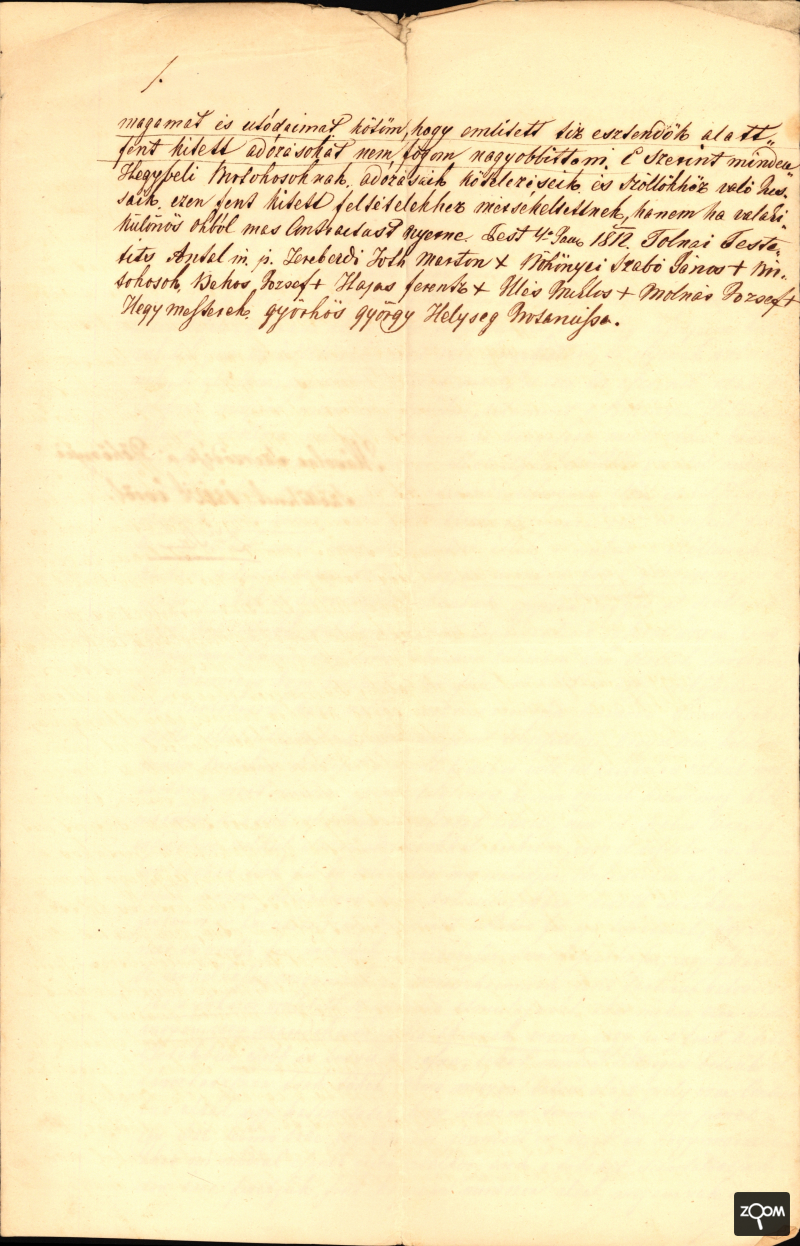 /.
magamat és utódaimat kötöm, hogy emlitett tiz esztendők alatt
fent kitett adózásokat nem fogom nagyobbittani. E szerint minden
Hegybeli Birtokosoknak, adózásaik kötelezéseik, és szöllőkhöz való Jus-
saik, ezen fent kitett feltételekhez mérsékeltettnek, hanem ha valaki
különös okból mas Contractust nyerne. Pest 4a Jan. 1812. Tolnai Feste-
tits Antal m. p. Terebezdi Toth Marton + Kökényei Szabó János + Bir-
tokosok, Bakos Jozsef + Hajas ferentz + Illés Miklos + Molnár Jozsef +
Hegy mesterek. györkös györgy Helyseg Notariussa.
ZOOM